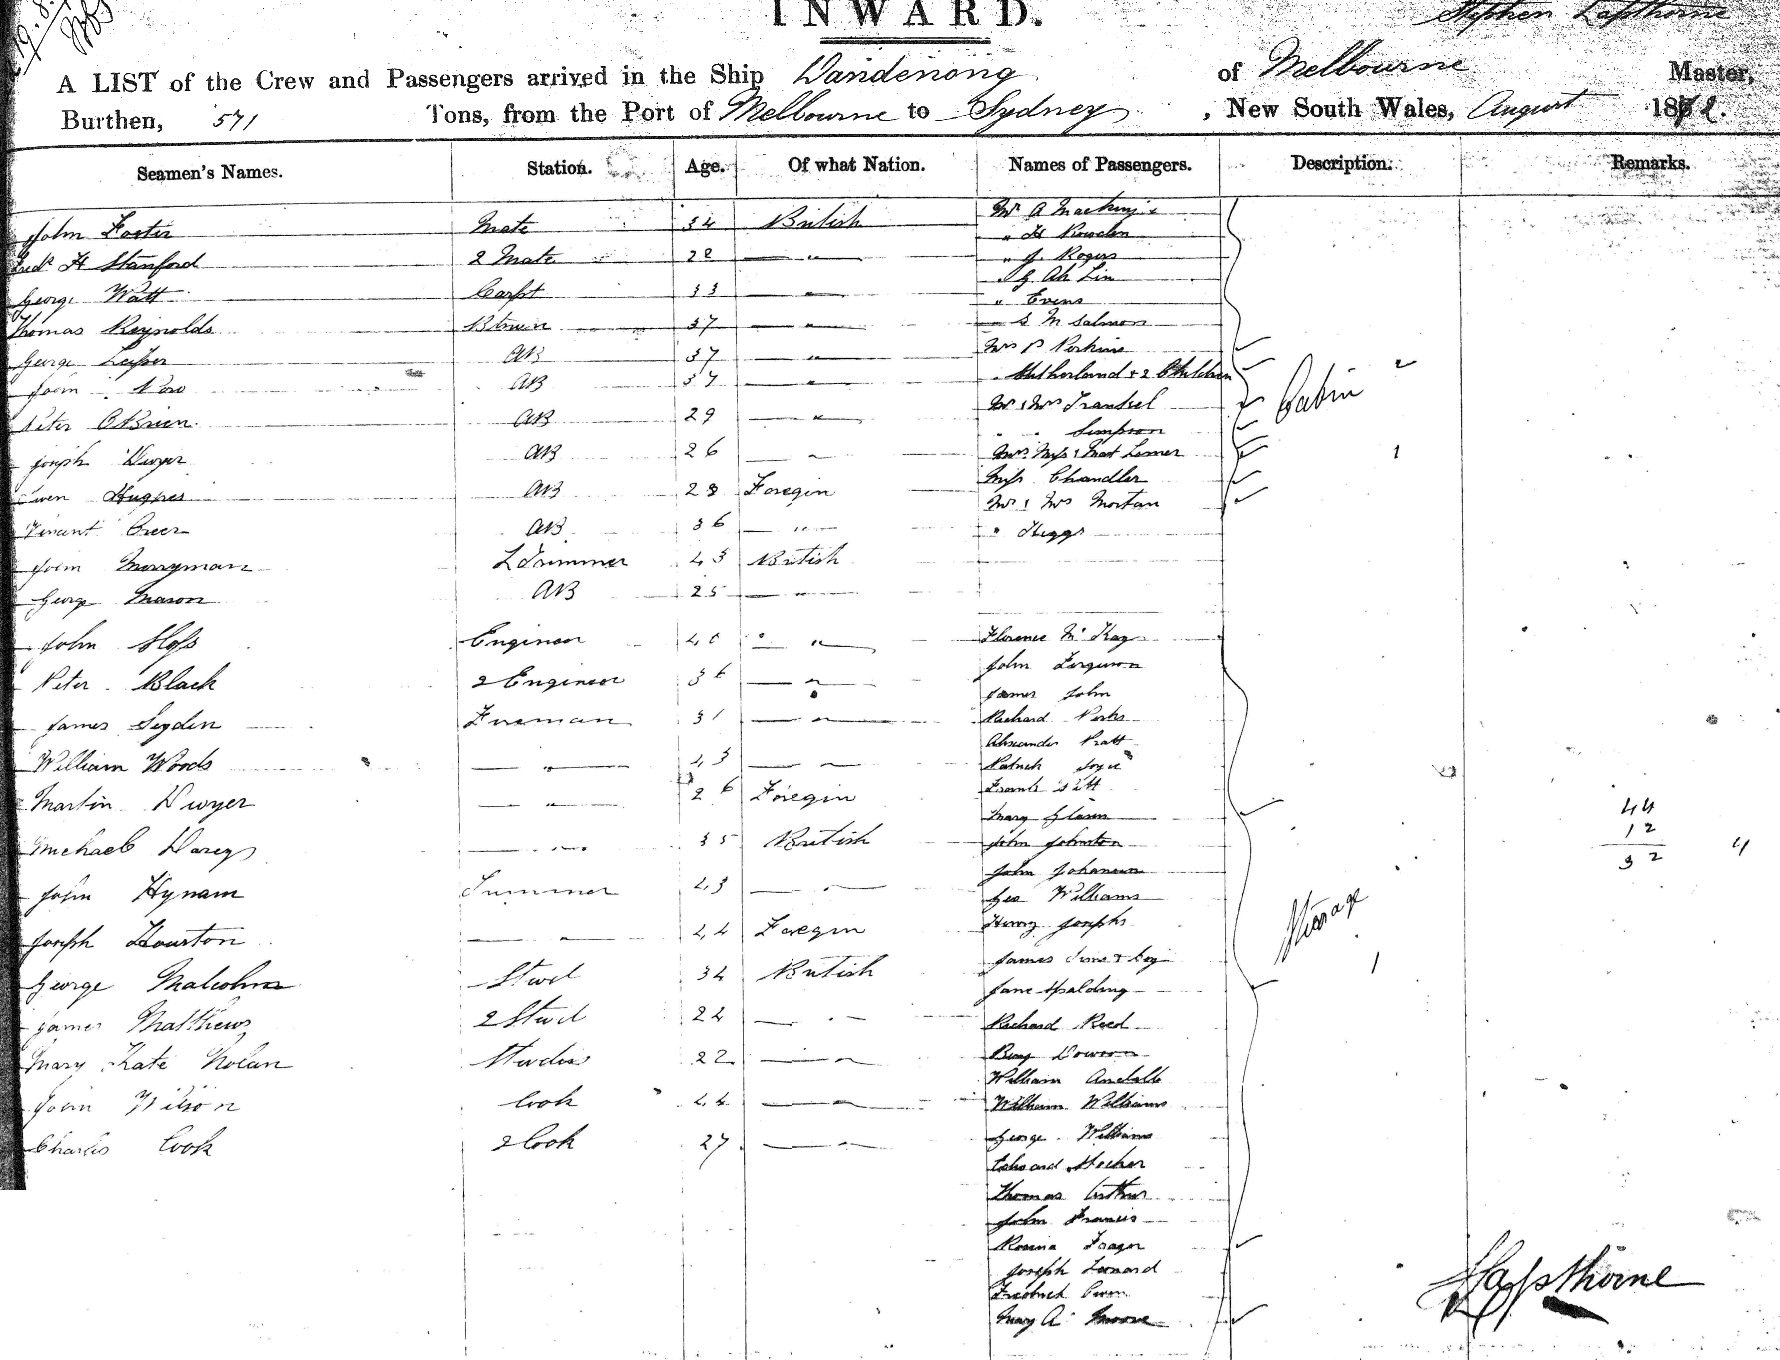 INWARD.
Stephen Lapthorne
A LIST of the Crew and Passengers arrived in the Ship Dandenong of Melbourne Master,
Burthen, 571 Tons, from the Port of Melbourne to Sydney, New South Wales, August 1872.
Seamen's Names. Station. Age. Of what Nation. Names of Passengers. Description. Remarks.
John Foster Mate 34 British
Fredk H Stanford 2 Mate 28 "
George Watt Carpt 33 "
Thomas Reynolds 37 "
George AB 37 "
John AB 37 "
Peter OBrien AB 29 "
Joseph Dwyer AB 26 "
Owen Hughes AB 28 Foregin
Creer AB 36 "
John Merryman L Trimmer 43 British
George Mason AB 25 "
John Sloss Engineer 40 "
Peter Black 2 Engineer 36 "
James Fireman 31 "
William Woods " 43 "
Martin Dwyer " 26 Foregin
Michael Darcy " 35 British
John Hynam Trimmer 43 "
Joseph Hourton " 44 Foregin
George Malcolm Stwd 34 British
James Matthews 2 Stwd 22 "
Mary Kate Nolan Stwdss 22 "
John Wilson Cook 44 "
Charles Cook 2 Cook 27 "
Mr A Mackenzie
" H Rowden
" J Rogers
" G Ah Lin
" Evens
" S M Salmon
Mrs P Perkins
" Sutherland + 2 Children
Mr & Mrs Frankel
" " Simpson
Mrs Miss & Mast
Miss Chandler
Mr & Mrs Mortan
" Higgs
Cabin
1
Florence McKay
John Ferguson
James John
Richard
Alexander Pratt
Patrick Joyce
Frank
Mary
John Johnston
John Johanson
Geo Williams
Henry Josephs
James & Boy
Jane Spalding
Richard Reed
Benj Dowson
William
William Williams
George Williams
Edward
Thomas Arthur
John Francis
Rosina
Joseph Leonard
Fredrick Owen
Mary A Moore
Sterage
1
44
12
32
4
S Lapsthorne